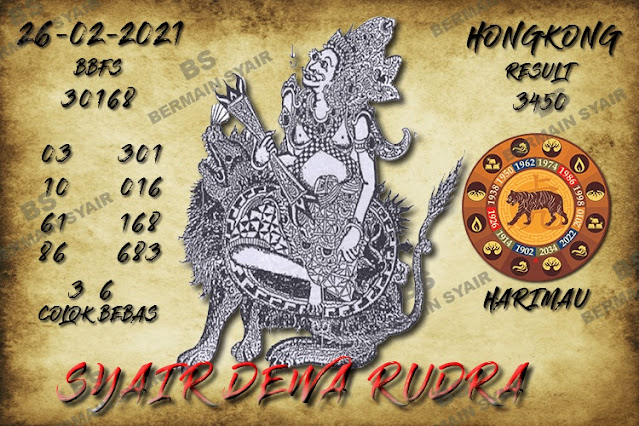 26-02-2021
BBFS
30168
03 301
10 016
61 168
86 683
3 6
COLOK BEBAS
HONGKONG
RESULT
3450
1962 1974 1986 1998 2010 2022 2034 1902 1914 1926 1938 1950
HARIMAU
SYAIR DEWA RUDRA
BS
BERMAIN SYAIR
BS
BERMAIN SYAIR
BERMAIN SYAIR
BERMAIN SYAIR
BERMAIN SYAIR